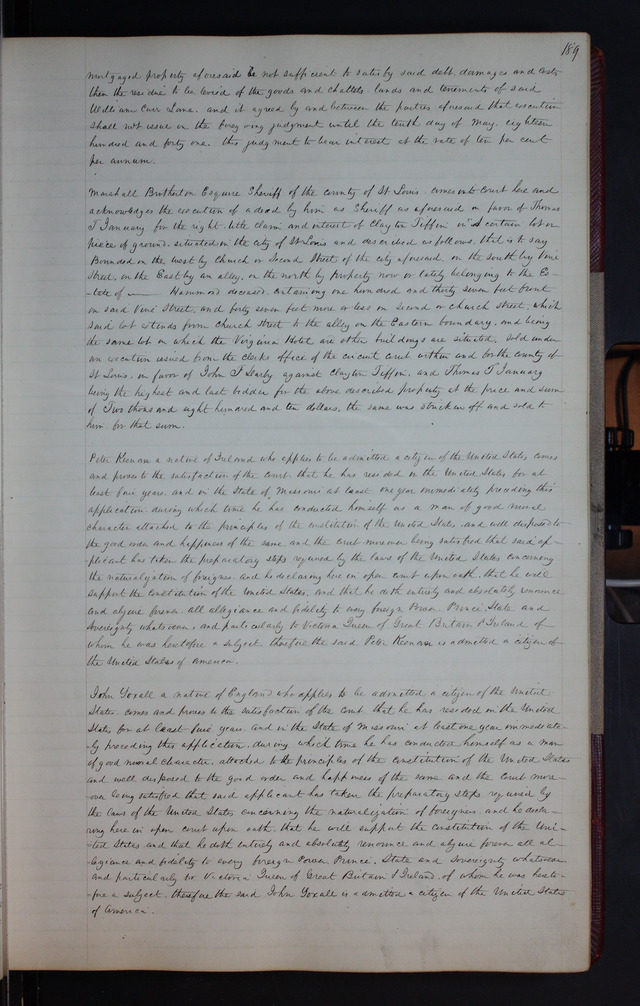 189
mortgaged property aforesaid be not sufficient to satisfy said debt, damages and costs
then the residue to be levied of the goods and chattels lands and tenements of said
William Carr Lane. and it agreed by and between the parties aforesaid that execution
shall not issue on the foregoing judgment until the tenth day of May. eighteen
hundred and forty one. this judgment to bear interest at the rate of ten per cent
per annum.
Marshall Brotherton Esquire Sheriff of the county of St Louis. comes into Court here and
acknowledges the execution of a deed by him as Sheriff as aforesaid in favor of Thomas
T January for the right, title claim and interest of Clayton Tiffin in a certain lot or
piece of ground. situated in the city of St Louis and described as follows. that is to say
Bounded on the West by Church or Second Street of the city aforesaid, on the South by Vine
Street, on the East by an alley, on the north by property now or lately belonging to the Es-
-tate of — Hammond deceased. containing one hundred and thirty seven feet front
on said Vine Street, and forty seven feet more or less on second or church street, which
said lot extends from Church Street to the alley on the Eastern boundary. and being
the same lot on which the Virginia Hotel are other buildings are situated. Sold under
an execution issued from the clerks office of the circuit court within and for the county of
St Louis. in favor of John F Darby against Clayton Tiffin. and Thomas T January
being the highest and last bidder for the above described property at the price and sum
of Two thousand eight hundred and ten dollars. the same was struck off and sold to
him for that sum.
Peter Keenan a native of Ireland who applies to be admitted a citizen of the United States comes
and proves to the satisfaction of the court that he has resided in the United States for at
least five years. and in the State of Missouri at least one year immediately preceding this
application. during which time he has conducted himself as a man of good moral
character attached to the principles of the constitution of the United States. and well disposed to
the good order and happiness of the same and the court moreover being satisfied that said ap-
-plicant has taken the preparatory steps required by the laws of the United States concerning
the naturalization of foreigners. and he declaring here in open court upon oath. that he will
support the constitution of the United States, and that he doth entirely and absolutely renounce
and abjure forever all allegiance and fidelity to every foreign Power. Prince. State and
Sovereignty whatsoever. and particularly to Victoria Queen of Great Britain & Ireland of
whom he was heretofore a subject. therefore the said Peter Keenan is admitted a citizen of
the United States of America.
John Yoxall a native of England who applies to be admitted a citizen of the United
States. comes and proves to the satisfaction of the Court that he has resided in the United
States for at least five years. and in the State of Missouri at least one year immediate-
-ly preceding this application. during which time he has conducted himself as a man
of good moral character. attached to the principles of the constitution of the United States
and well disposed to the good order and happiness of the same and the Court more-
-over being satisfied that said applicant has taken the preparatory steps required by
the laws of the United States concerning the naturalization of foreigners. and he decla-
ring here in open court upon oath. that he will support the constitution of the Uni-
-ted States and that he doth entirely and absolutely renounce and abjure forever all al-
legiance and fidelity to every foreign Power. Prince. State and Sovereignty whatsoever
and particularly to Victoria Queen of Great Britain & Ireland. of whom he was hereto-
fore a subject. therefore the said John Yoxall is admitted a citizen of the United States
of America.